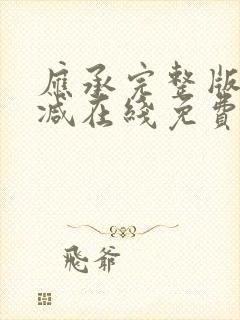 應承完整版
減在綫免費
飛爺